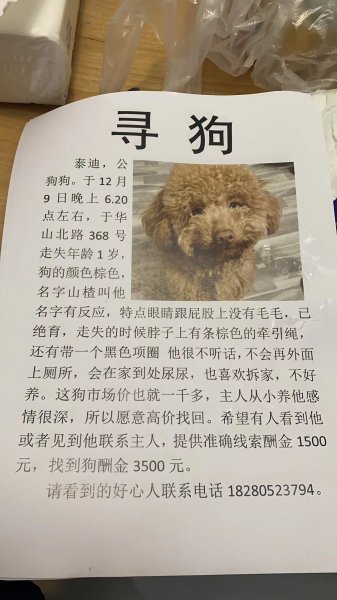 寻 狗
泰迪，公
狗狗。于 12 月
9 日晚上 6.20
点左右，于华
山北路 368 号
走失年龄 1 岁，
狗的颜色棕色，
名字山楂叫他
名字有反应，特点眼睛跟屁股上没有毛毛，已
绝育，走失的时候脖子上有条棕色的牵引绳，
还有带一个黑色项圈 他很不听话，不会再外面
上厕所，会在家到处尿尿，也喜欢拆家，不好
养。这狗市场价也就一千多，主人从小养他感
情很深，所以愿意高价找回。希望有人看到他
或者见到他联系主人，提供准确线索酬金 1500
元，找到狗酬金 3500 元。
请看到的好心人联系电话 18280523794。